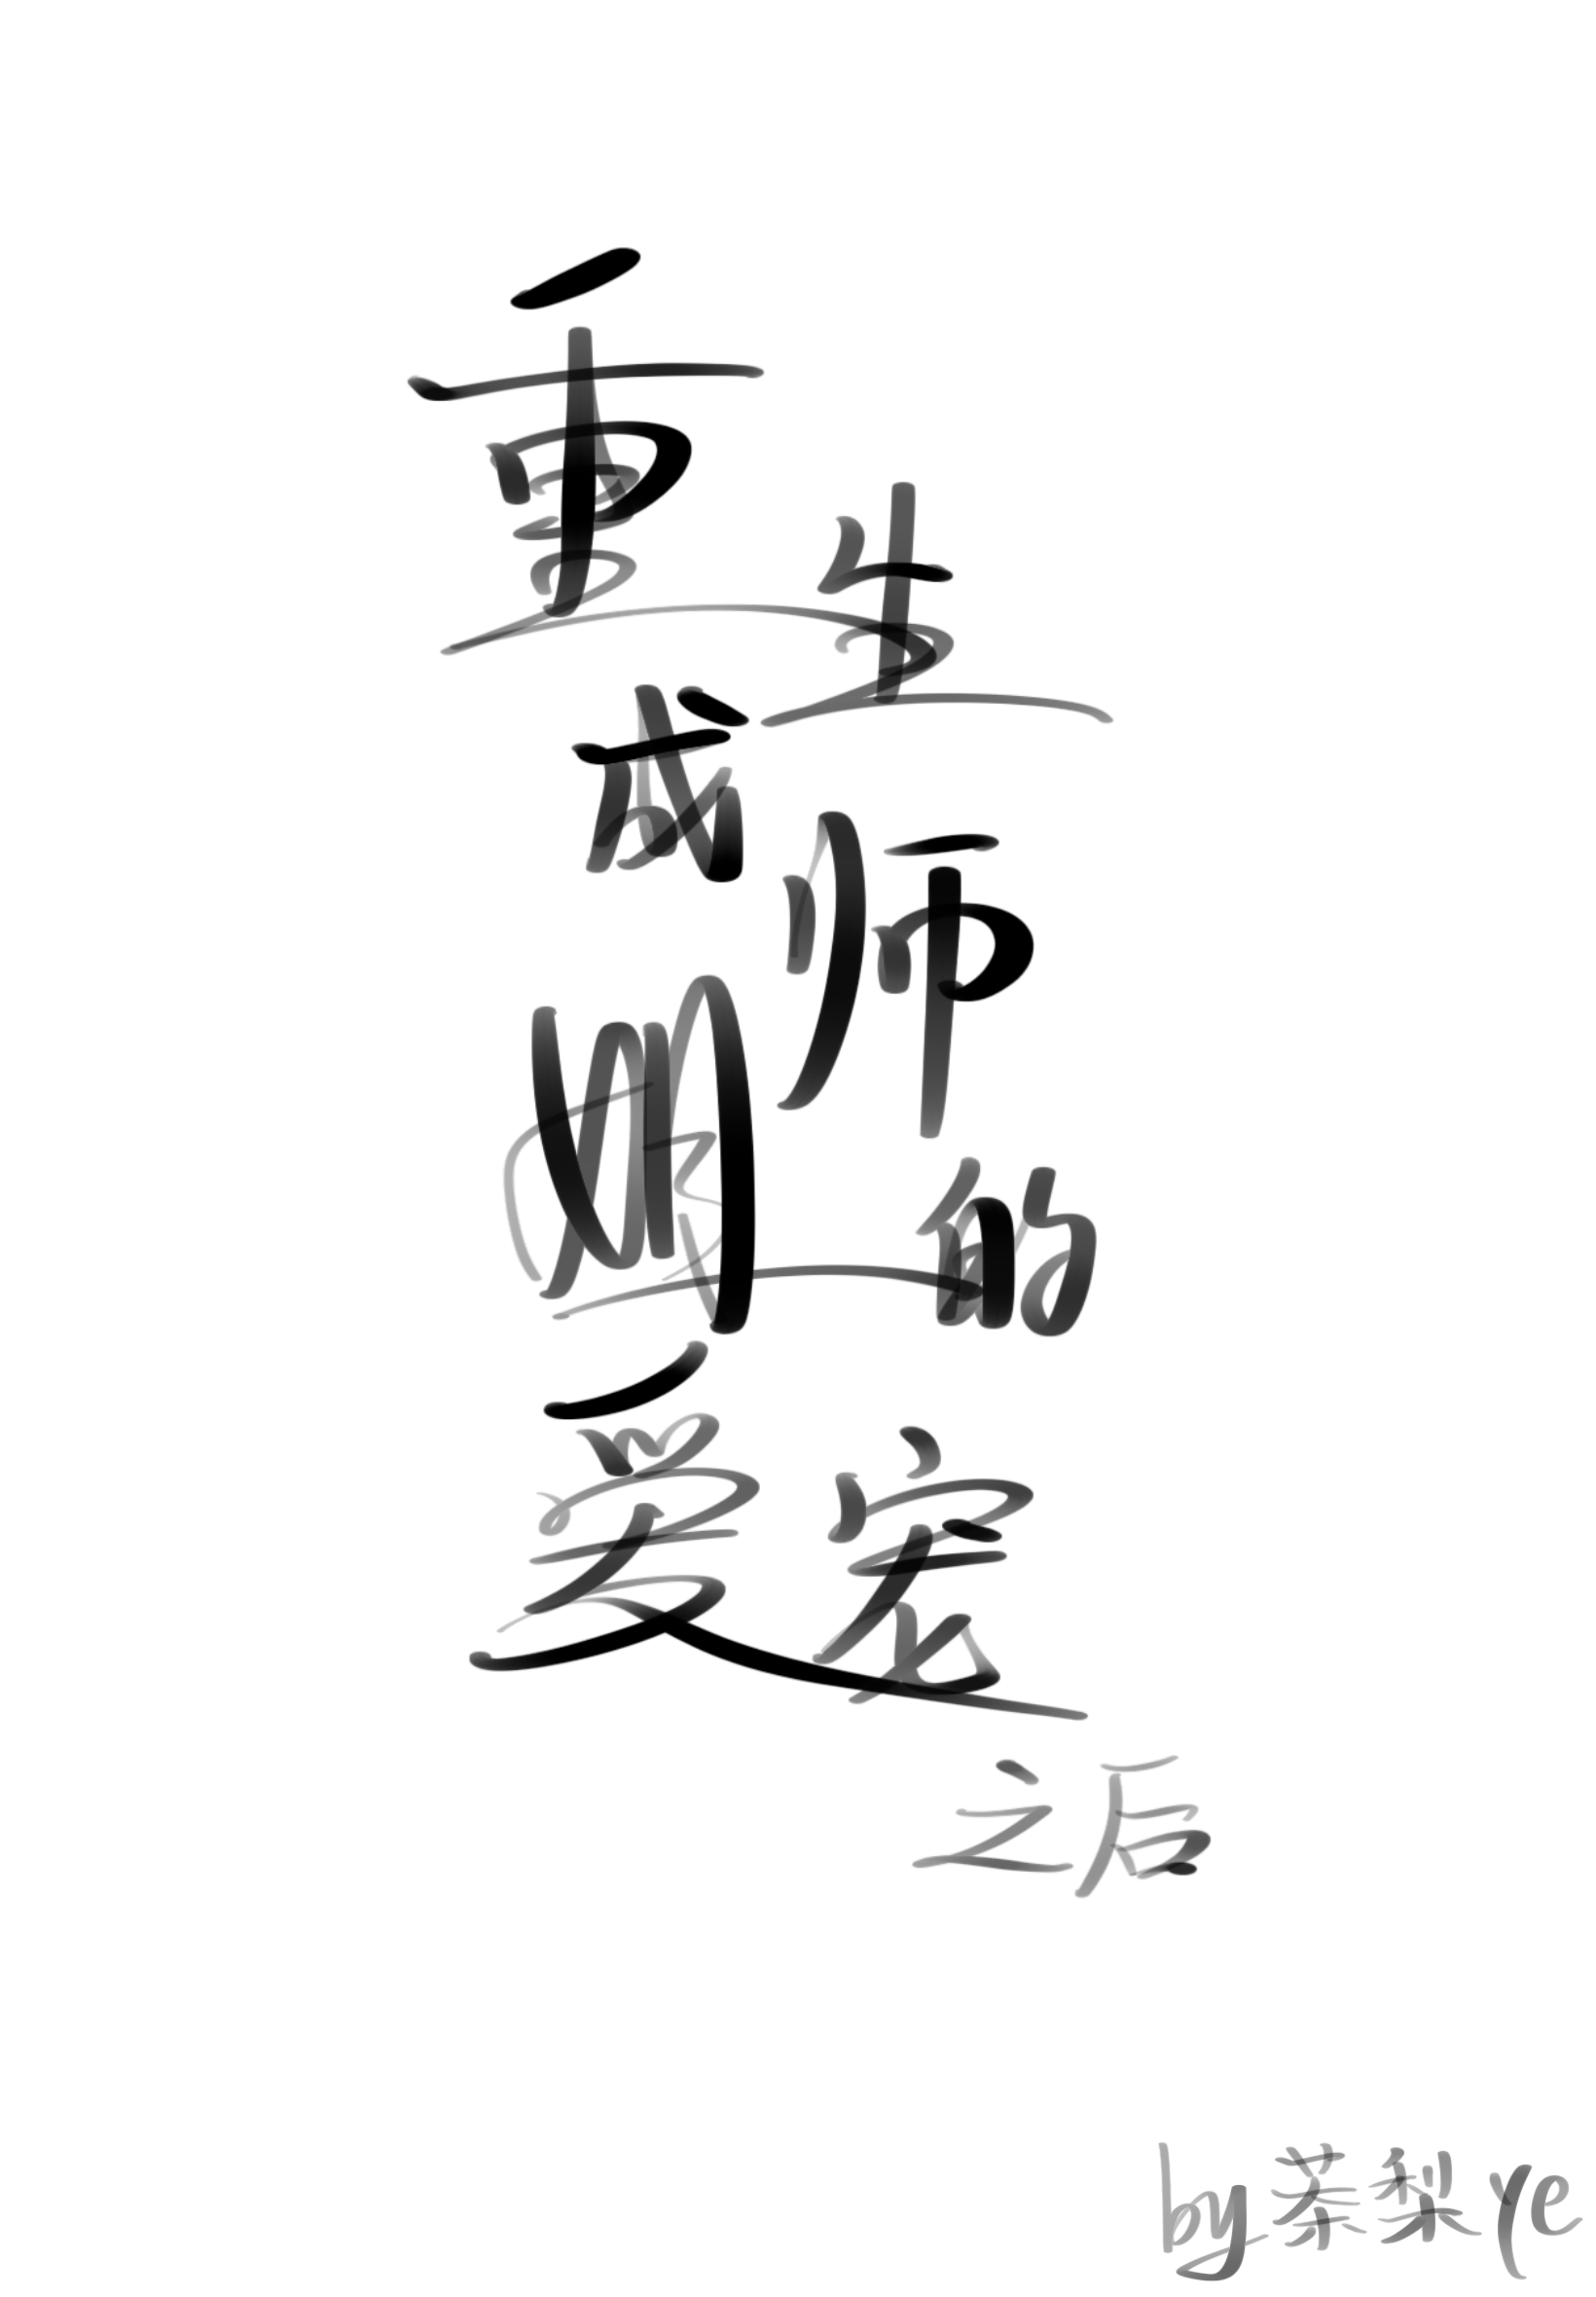 重生
成师
姐的
爱宠
之后
by茶梨Ye